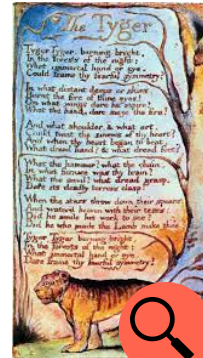 The Tyger
Tyger Tyger, burning bright,
In the forests of the night;
What immortal hand or eye,
Could frame thy fearful symmetry?
In what distant deeps or skies
Burnt the fire of thine eyes?
On what wings dare he aspire?
What the hand, dare sieze the fire?
And what shoulder, & what art,
Could twist the sinews of thy heart?
And when thy heart began to beat,
What dread hand? & what dread feet?
What the hammer? what the chain,
In what furnace was thy brain?
What the anvil? what dread grasp,
Dare its deadly terrors clasp?
When the stars threw down their spears
And water'd heaven with their tears:
Did he smile his work to see?
Did he who made the Lamb make thee?
Tyger Tyger burning bright,
In the forests of the night:
What immortal hand or eye,
Dare frame thy fearful symmetry?